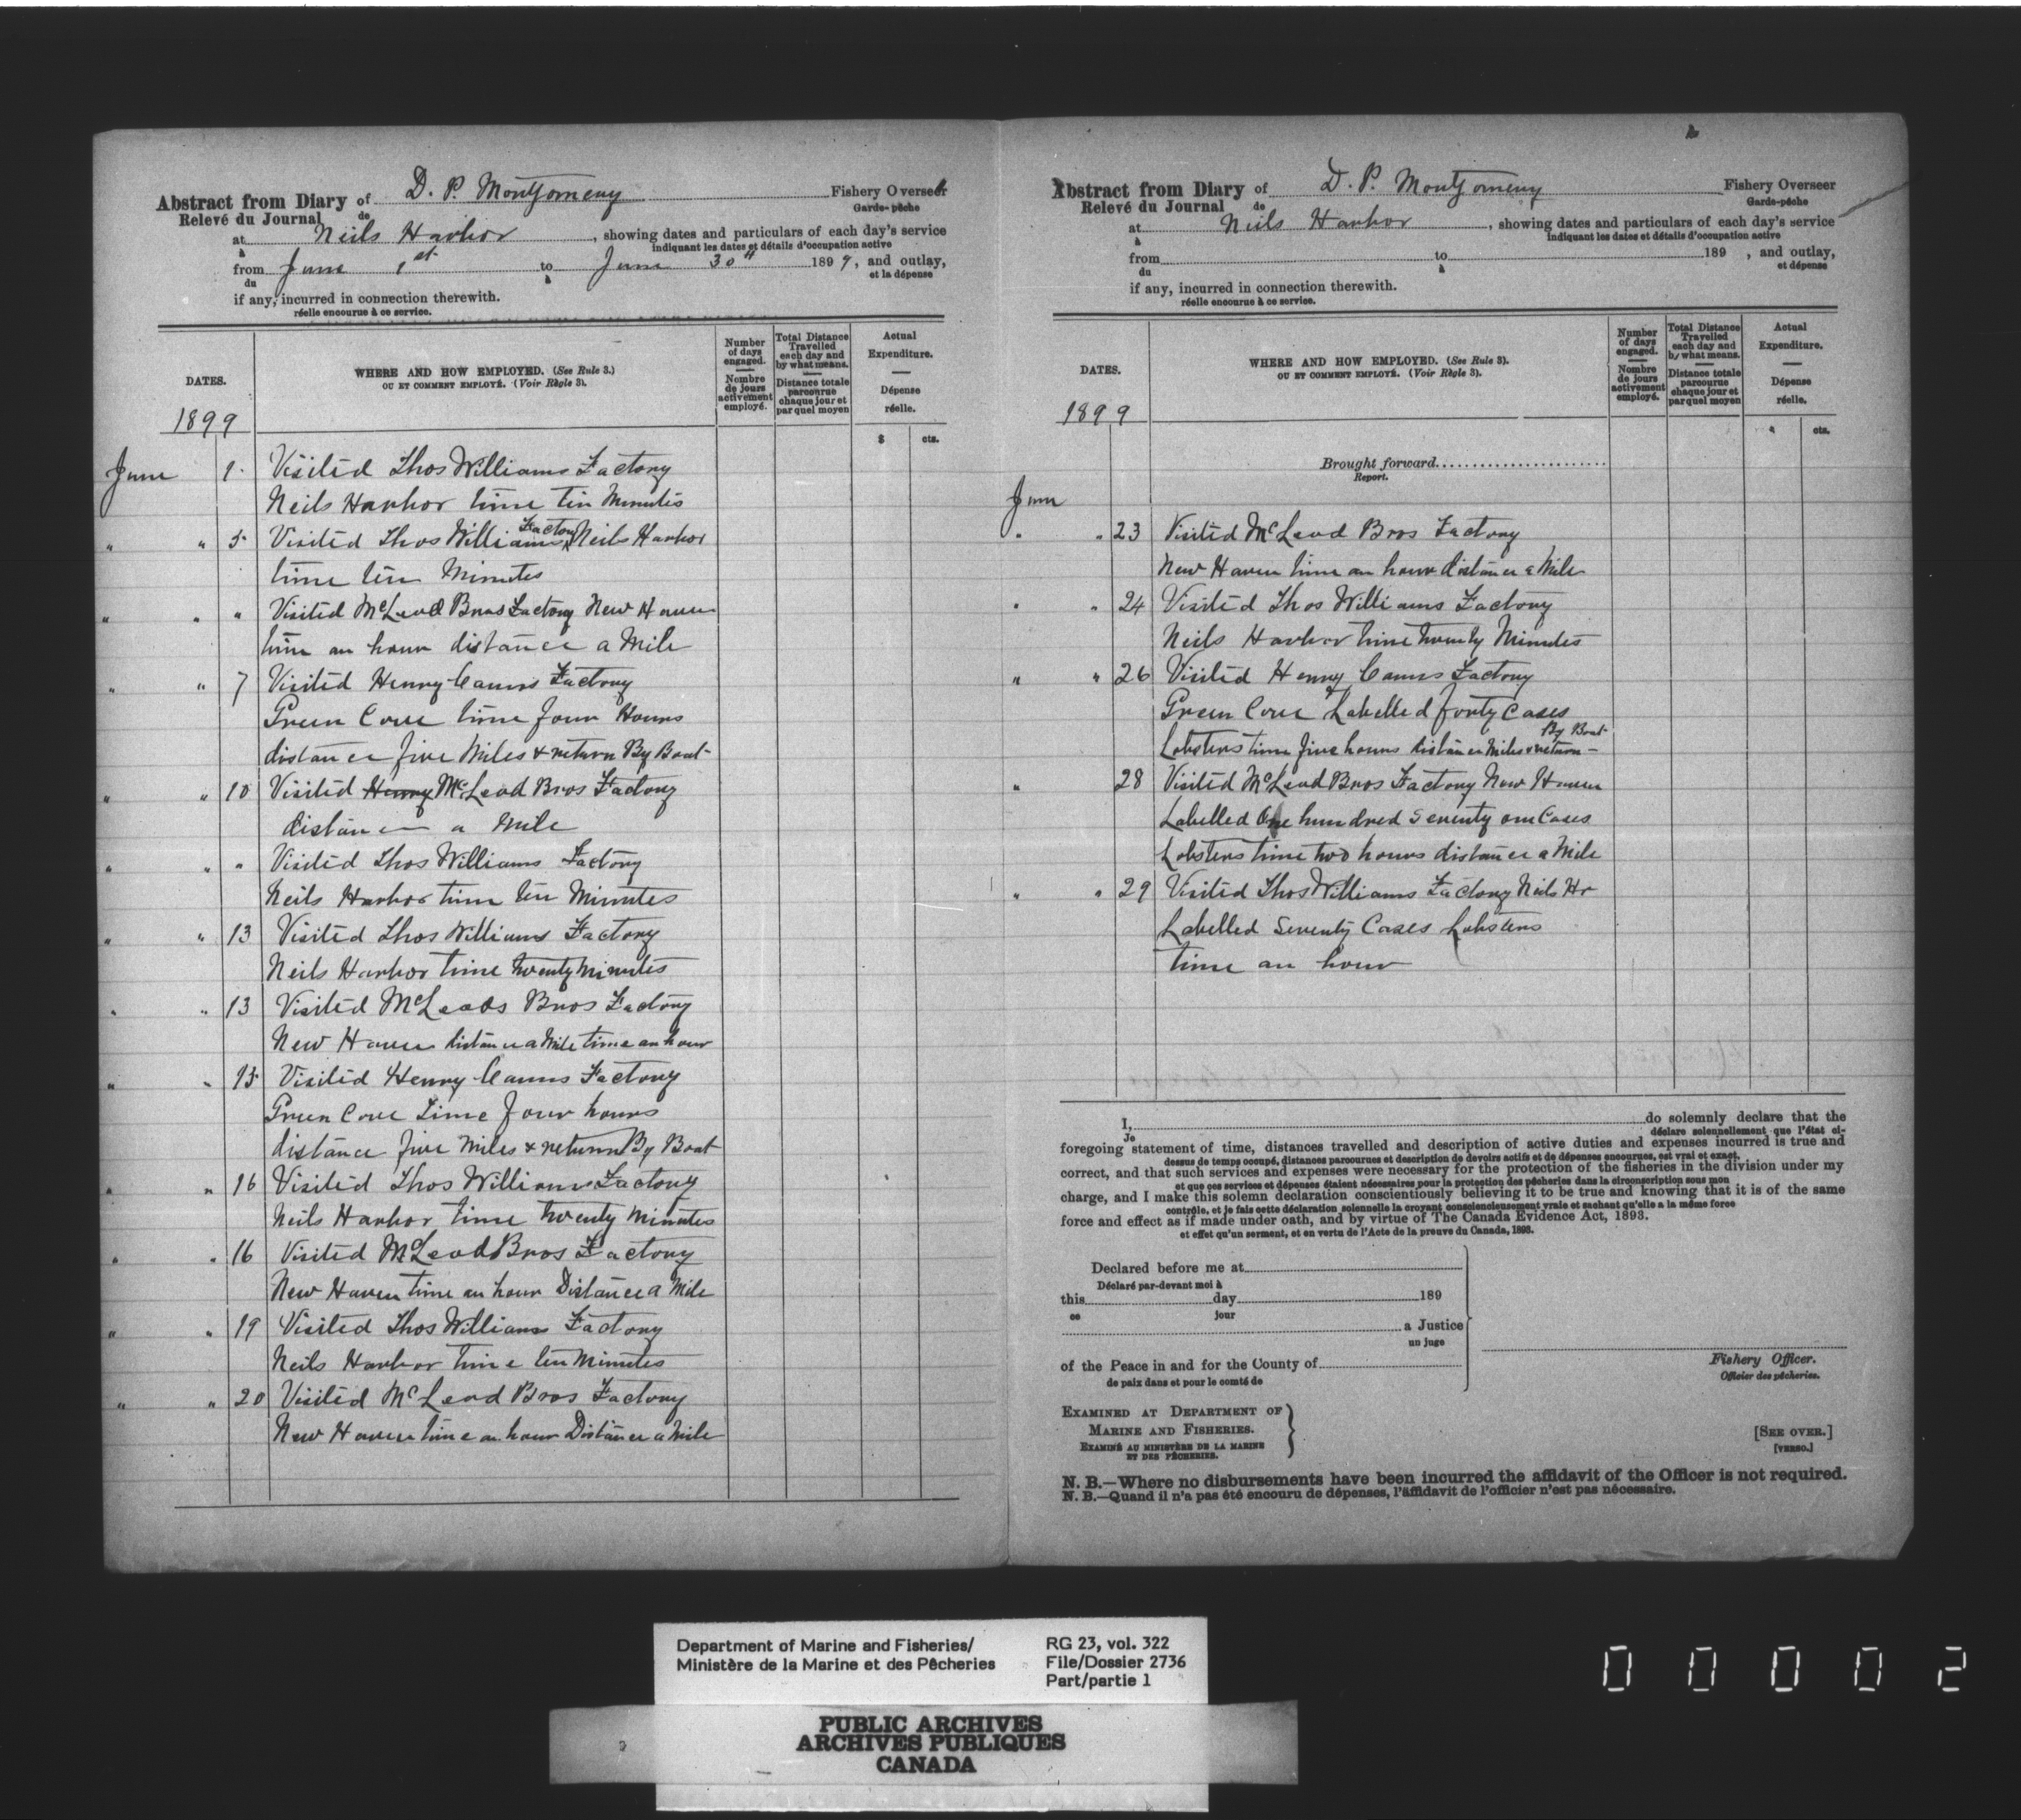 Abstract from Diary of D. P. Montgomery Fishery Overseer
Relevé du Journal de Garde-pêche
at Neils Harbor, showing dates and particulars of each day's service
à indiquant les dates et détails d'occupation active
from June 1st to June 30th 1899, and outlay,
du à et la dépense
if any, incurred in connection therewith.
réelle encourue à ce service.
DATES.
WHERE AND HOW EMPLOYED. (See Rule 3.)
OU ET COMMENT EMPLOYÉ. (Voir Règle 3).
Number of days engaged.
Nombre de jours activement employé.
Total Distance Travelled each day and by what means.
Distance totale parcourue chaque jour et par quel moyen
Actual Expenditure.
Dépense réelle.
1899
$ cts.
June 1 Visited Thos Williams Factory
Neils Harbor time ten Minutes
" " 5 Visited Thos Williams Factory Neils Harbor
time ten Minutes
" " " Visited McLeod Bros Factory New Haven
time an hour distance a Mile
" " 7 Visited Henry Canns Factory
Green Cove time four Hours
distance five Miles & return By Boat
" " 10 Visited Henry McLeod Bros Factory
distance a Mile
" " " Visited Thos Williams Factory
Neils Harbor time ten Minutes
" " 13 Visited Thos Williams Factory
Neils Harbor time twenty Minutes
" " 13 Visited McLeods Bros Factory
New Haven distance a Mile time an hour
" " 15 Visited Henry Canns Factory
Green Cove Time four hours
distance five Miles & return By Boat
" " 16 Visited Thos Williams Factory
Neils Harbor time twenty Minutes
" " 16 Visited McLeod Bros Factory
New Haven time an hour Distance a Mile
" " 19 Visited Thos Williams Factory
Neils Harbor time ten Minutes
" " 20 Visited McLeod Bros Factory
New Haven time an hour Distance a Mile
Abstract from Diary of D. P. Montgomery Fishery Overseer
Relevé du Journal de Garde-pêche
at Neils Harbor, showing dates and particulars of each day's service
à indiquant les dates et détails d'occupation active
from to 189 , and outlay,
du à et dépense
if any, incurred in connection therewith.
réelle encourue à ce service.
DATES.
WHERE AND HOW EMPLOYED. (See Rule 3).
OU ET COMMENT EMPLOYÉ. (Voir Règle 3).
Number of days engaged.
Nombre de jours activement employé.
Total Distance Travelled each day and by what means.
Distance totale parcourue chaque jour et par quel moyen
Actual Expenditure.
Dépense réelle.
1899
cts.
Brought forward
Report.
June
" " 23 Visited McLeod Bros Factory
New Haven time an hour distance a Mile
" " 24 Visited Thos Williams Factory
Neils Harbor time twenty Minutes
" " 26 Visited Henry Canns Factory
Green Cove & Labelled forty Cases
Lobsters time five hours distance Miles & return By Boat
" 28 Visited McLeod Bros Factory New Haven
Labelled One hundred Seventy one Cases
Lobsters time two hours distance a Mile
" " 29 Visited Thos Williams Factory Neils Hr
Labelled Seventy Cases Lobsters
time an hour
I, do solemnly declare that the
Je déclare solennellement que l'état ci-
foregoing statement of time, distances travelled and description of active duties and expenses incurred is true and
dessus de temps occupé, distances parcourues et description de devoirs actifs et de dépenses encourues, est vrai et exact,
correct, and that such services and expenses were necessary for the protection of the fisheries in the division under my
et que ces services et dépenses étaient nécessaires pour la protection des pêcheries dans la circonscription sous mon
charge, and I make this solemn declaration conscientiously believing it to be true and knowing that it is of the same
contrôle, et je fais cette déclaration solennelle la croyant consciencieusement vraie et sachant qu'elle a la même force
force and effect as if made under oath, and by virtue of The Canada Evidence Act, 1893.
et effet qu'un serment, et en vertu de l'Acte de la preuve du Canada, 1893.
Declared before me at
Déclaré par-devant moi à
this day 189
ce jour
a Justice
un juge
of the Peace in and for the County of
de paix dans et pour le comté de
Fishery Officer.
Officier des pêcheries.
EXAMINED AT DEPARTMENT OF
MARINE AND FISHERIES.
EXAMINÉ AU MINISTÈRE DE LA MARINE
ET DES PÊCHERIES.
[SEE OVER.]
[VERSO.]
N. B.—Where no disbursements have been incurred the affidavit of the Officer is not required.
N. B.—Quand il n'a pas été encouru de dépenses, l'affidavit de l'officier n'est pas nécessaire.
Department of Marine and Fisheries/
Ministère de la Marine et des Pêcheries
RG 23, vol. 322
File/Dossier 2736
Part/partie 1
PUBLIC ARCHIVES
ARCHIVES PUBLIQUES
CANADA
00002